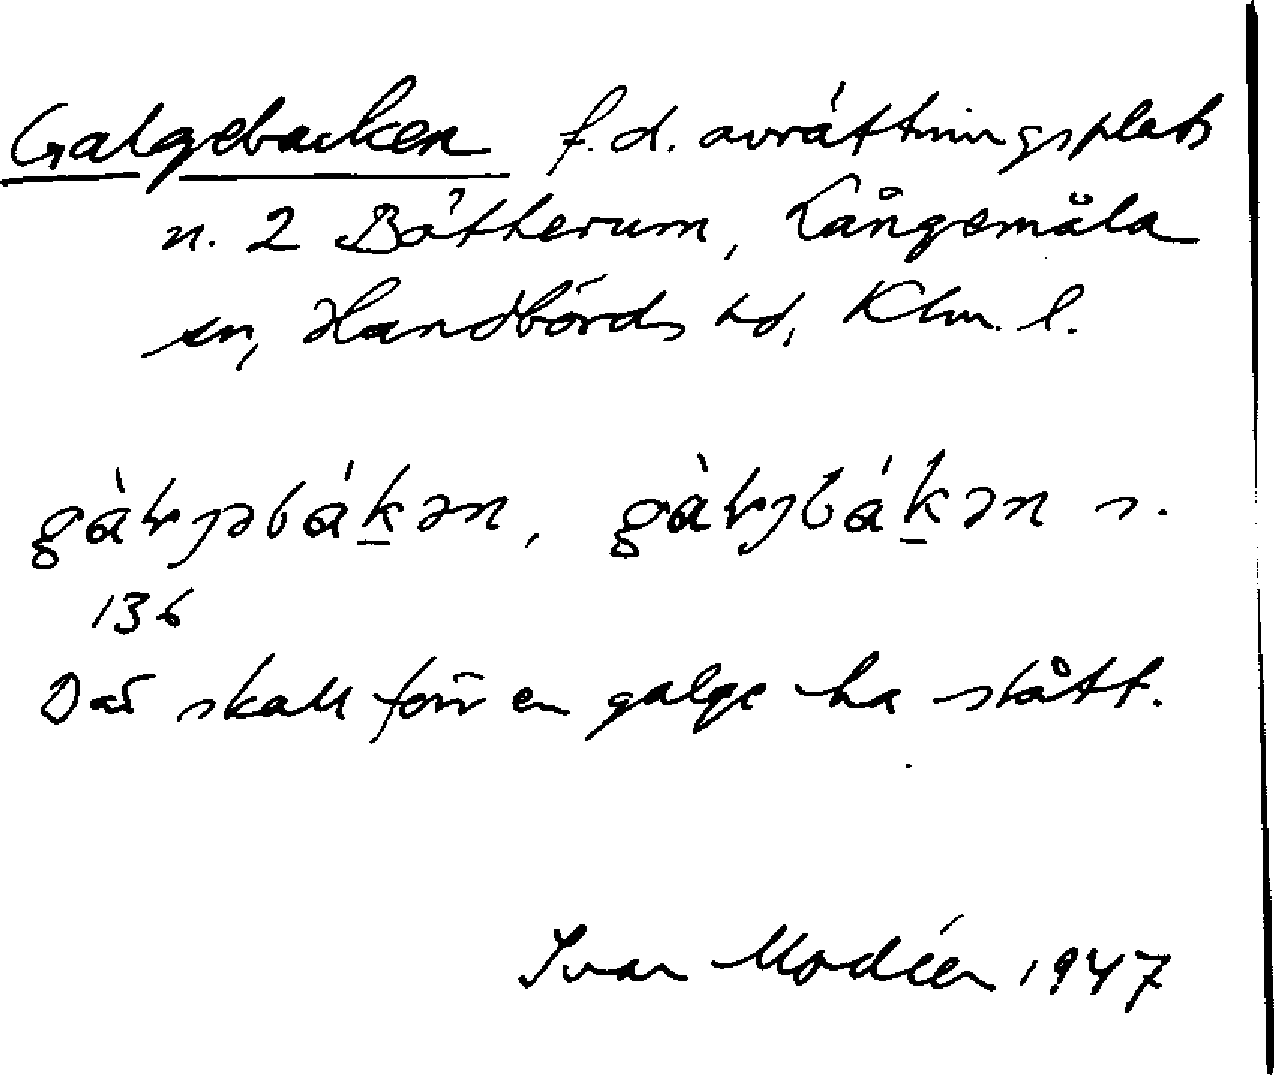 Galgebacken f.d. avrättningsplats
n. 2 Bötterum, Långemåla
sn, Handbörds hd, Klm. l.
gàljəbákən, gàljbákən s.
136
Där skall förr en galge ha stått.
Ivar Modéer 1947